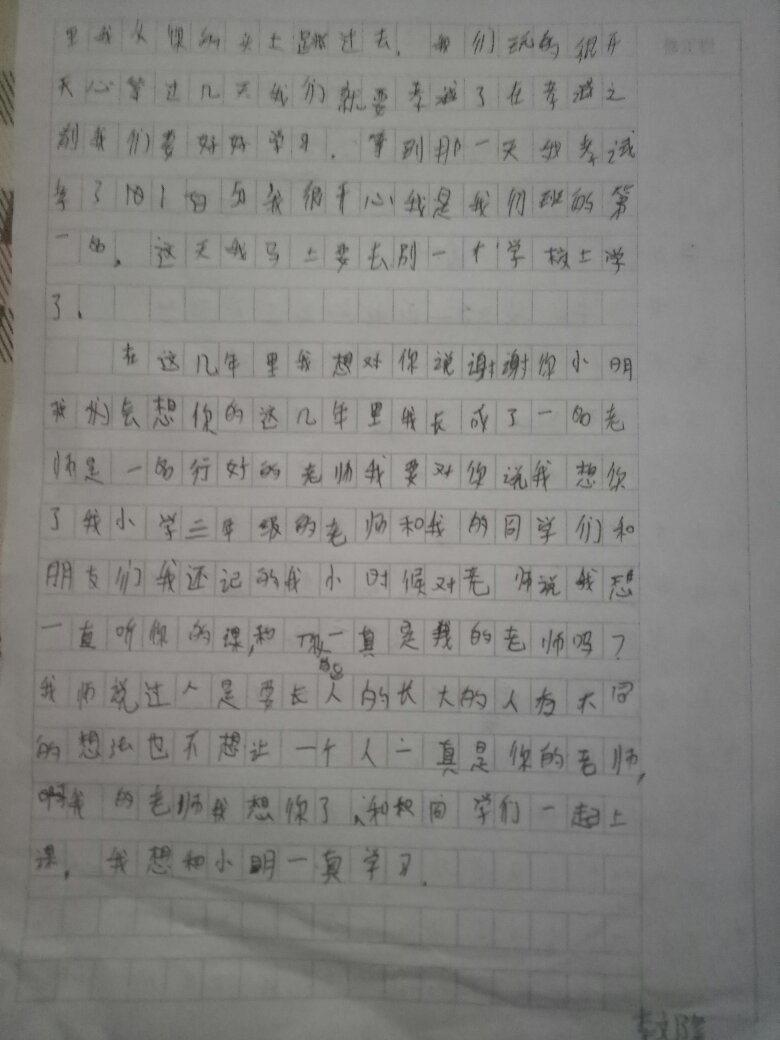 里我从你的头上跳过去，我们玩的很开
天心等过几天我们就要考试了在考试之
前我们要好好学习，等到那一天我考试
考了101百分我很开心我是我们班的第
一名，这天我马上要去别一个学校上学
了。
在这几年里我想对你说谢谢你小明
我们会想你的这几年里我长成了一名老
师是一名行好的老师我要对你说我想你
了我小学三年级的老师和我的同学们和
朋友们我还记的我小时候对老师说我想
一直听你的课,和一真定我的老师吗？
我师说过人是要长人的长大的人有不同
的想法也不想让一个人一真是你的老师,
啊我的老师我想你了、和同学们一起上
课，我想和小明一真学习.